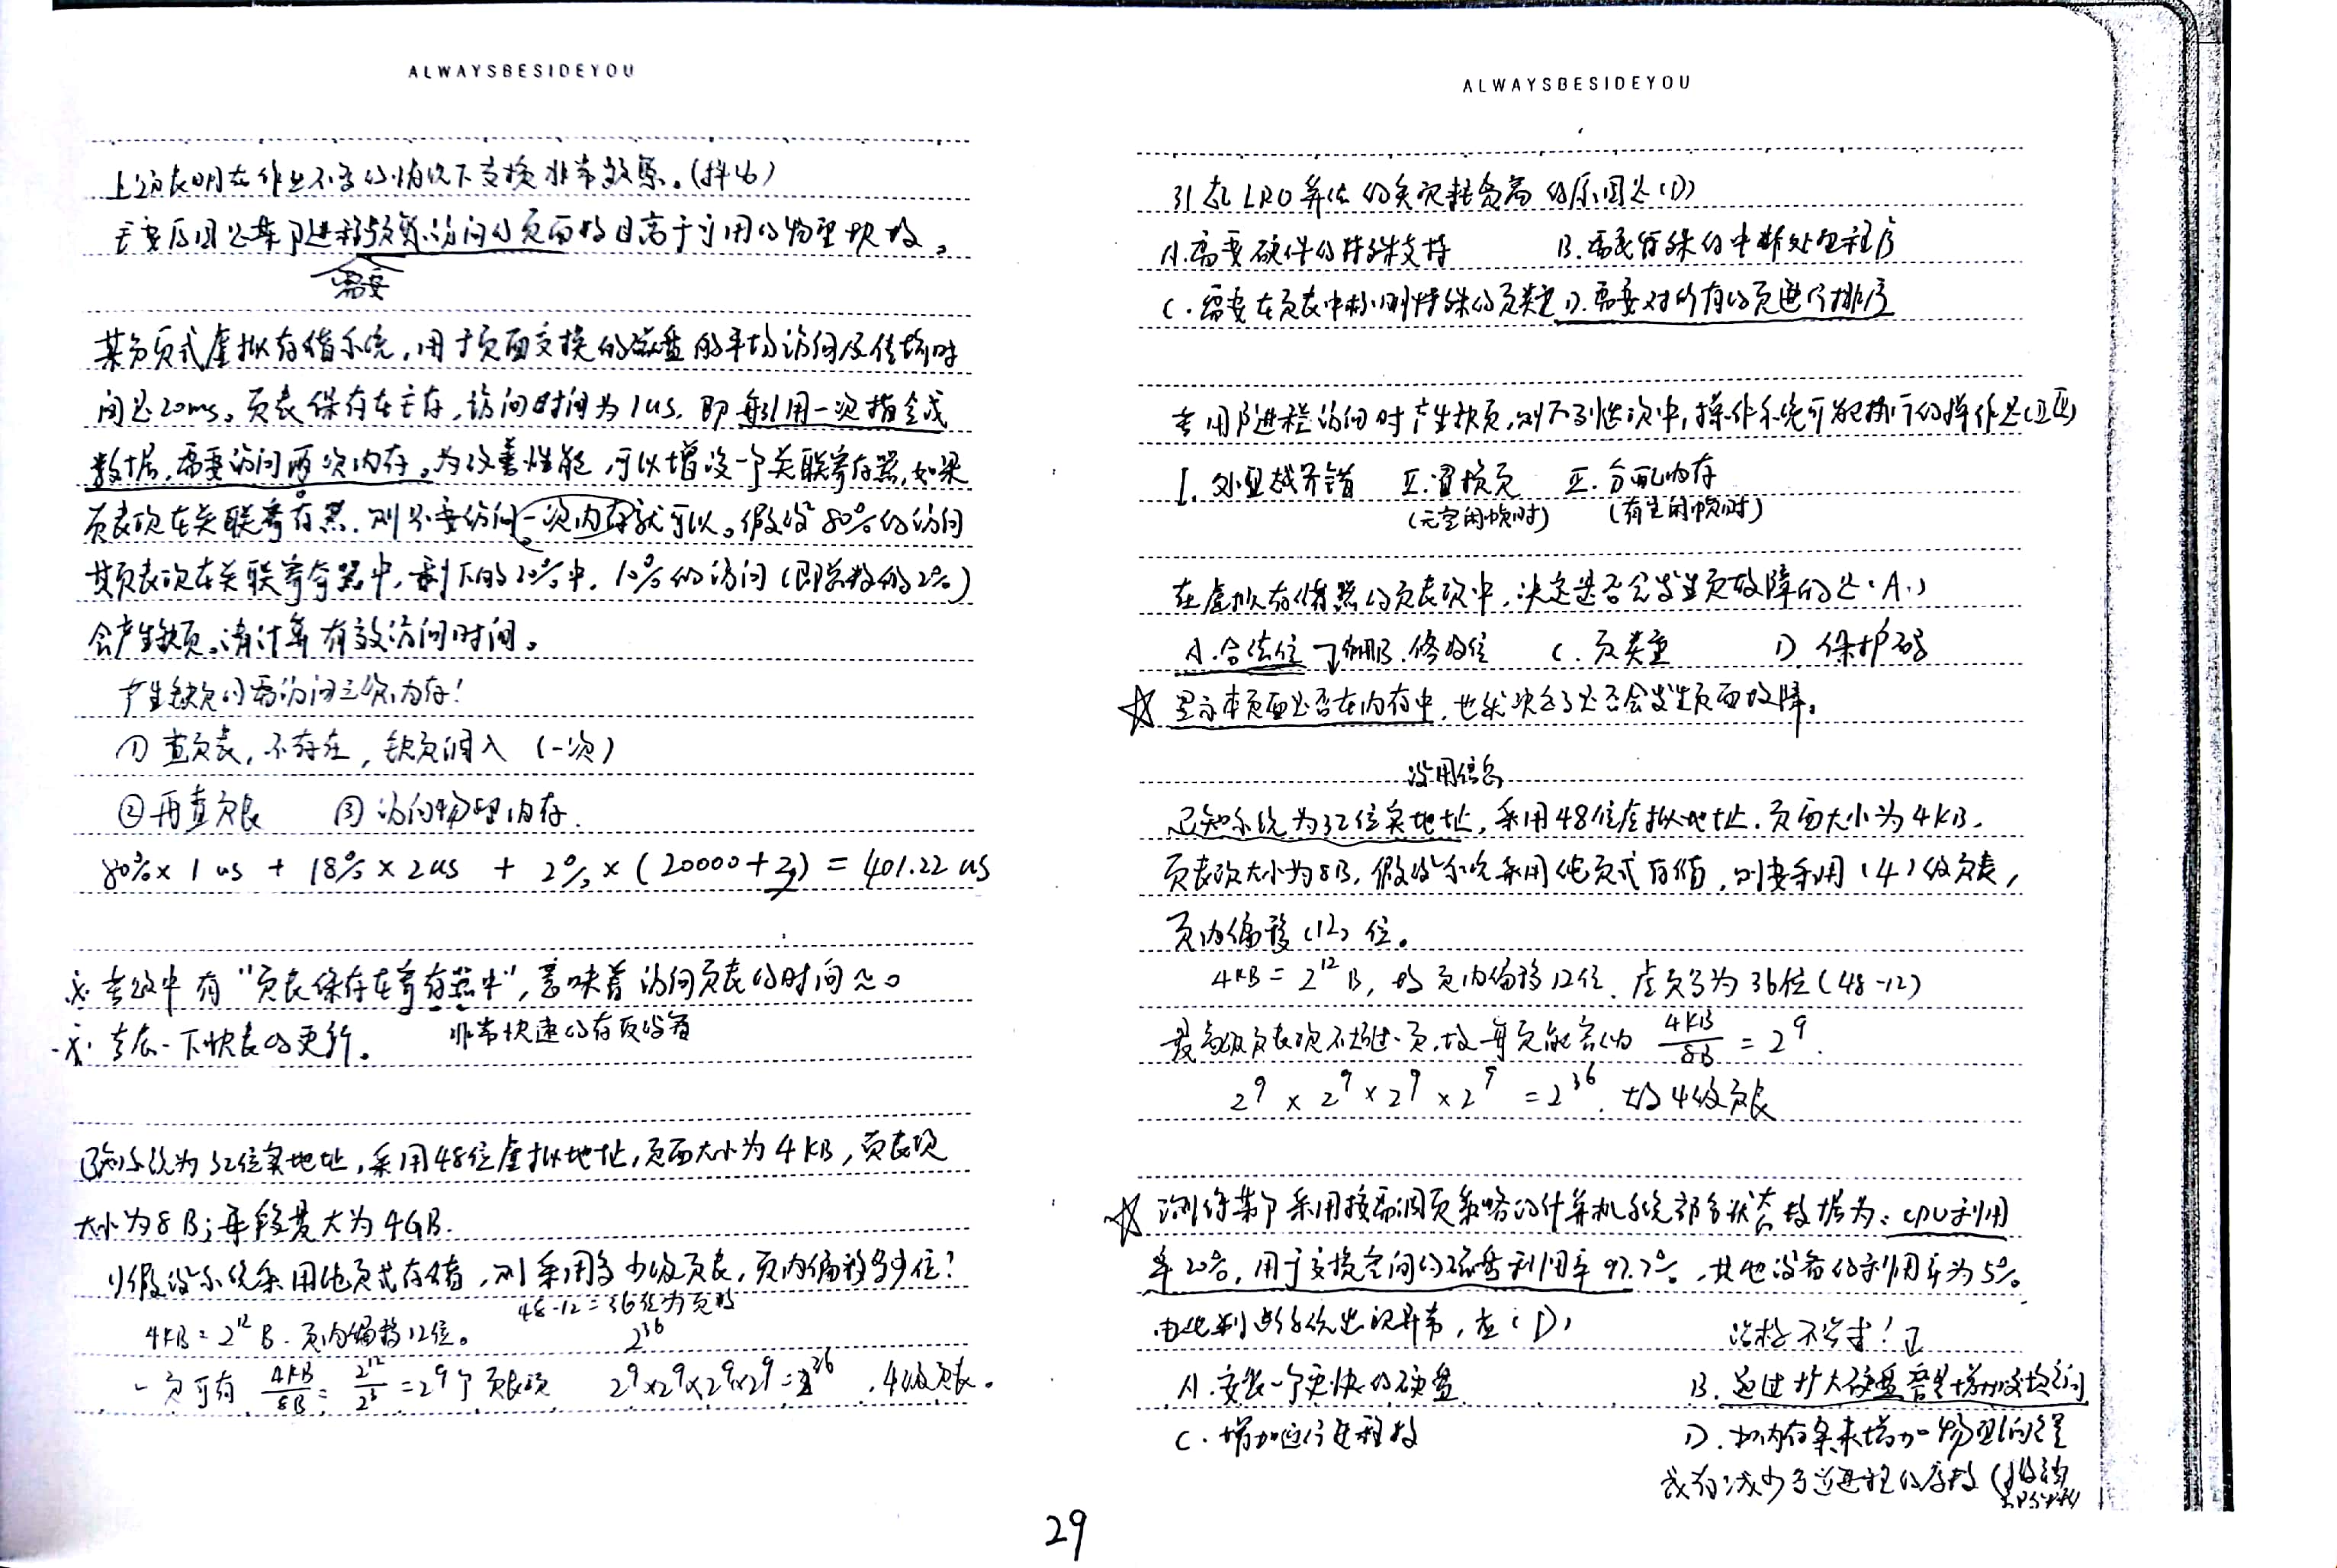 ALWAYSBESIDEYOU
上边表明在作业不多的情况下交换非常频繁。(抖动)
主要原因是某个进程频繁访问的页面数目高于可用的物理块数。
需要
某分页式虚拟存储系统,用于页面交换的磁盘的平均访问及传输时
间是20ms。页表保存在主存,访问时间为1us,即每引用一次指令或
数据,需要访问两次内存。为改善性能,可以增设一个关联寄存器,如果
页表项在关联寄存器,则只要访问一次内存就可以。假设80%的访问
其页表项在关联寄存器中,剩下的20%中,10%的访问(即总数的2%)
会产生缺页。请计算有效访问时间。
产生缺页时需访问三次内存!
① 查页表,不存在,缺页调入 (一次)
②再查页表 ③访问物理内存.
80%×1us + 18%×2us + 2%×(20000+3) = 401.22us
※ 若题中有“页表保存在寄存器中”,意味着访问页表的时间≈0
非常快速的存取设备
※ 考虑一下快表的更新。
已知系统为32位实地址,采用48位虚拟地址,页面大小为4KB,页表项
大小为8B;每段最大为4GB.
1)假设系统采用纯页式存储,则采用多少级页表,页内偏移多少位?
48-12=36位为页数
4KB=2^12B.页内偏移12位。 2^36
一页可有 4KB/8B = 2^12/2^3 = 2^9个页表项 2^9×2^9×2^9×2^9=2^36 ,4级页表。
ALWAYSBESIDEYOU
引起LRU算法的实现耗费高的原因是(D)
A.需要硬件的特殊支持 B.需要特殊的中断处理程序
C.需要在页表中标明特殊的页类型 D.需要对所有的页进行排序
若用户进程访问时产生缺页,则下列选项中,操作系统可能执行的操作是(
I.处理越界错 II.置换页 III.分配内存
(无空闲帧时) (有空闲帧时)
在虚拟存储器的页表项中,决定是否会发生页故障的是(A)
A.合法位 B.修改位 C.页类型 D.保护码
☆ 显示本页面是否在内存中,也就决定了是否会发生页面故障。
没用信息
已知系统为32位实地址,采用48位虚拟地址.页面大小为4KB.
页表项大小为8B,假设系统采用纯页式存储,则要采用(4)级页表,
页内偏移(12)位。
4KB=2^12B,故页内偏移12位.虚页号为36位(48-12)
最高级页表项不超过一页,故每页能容纳 4KB/8B = 2^9.
2^9 × 2^9 × 2^9 × 2^9 = 2^36. 故4级页表
☆ 测得某个采用按需调页策略的计算机系统部分状态数据为:CPU利用
率20%,用于交换空间的磁盘利用率97.7%,其他设备的利用率为5%。
由此判断系统出现异常,应(D)
治标不治本!
A.安装一个更快的硬盘 B.通过扩大硬盘容量增加交换空间
C.增加运行进程数 D.加内存条来增加物理空间容量
或者减少多道进程的序数
29